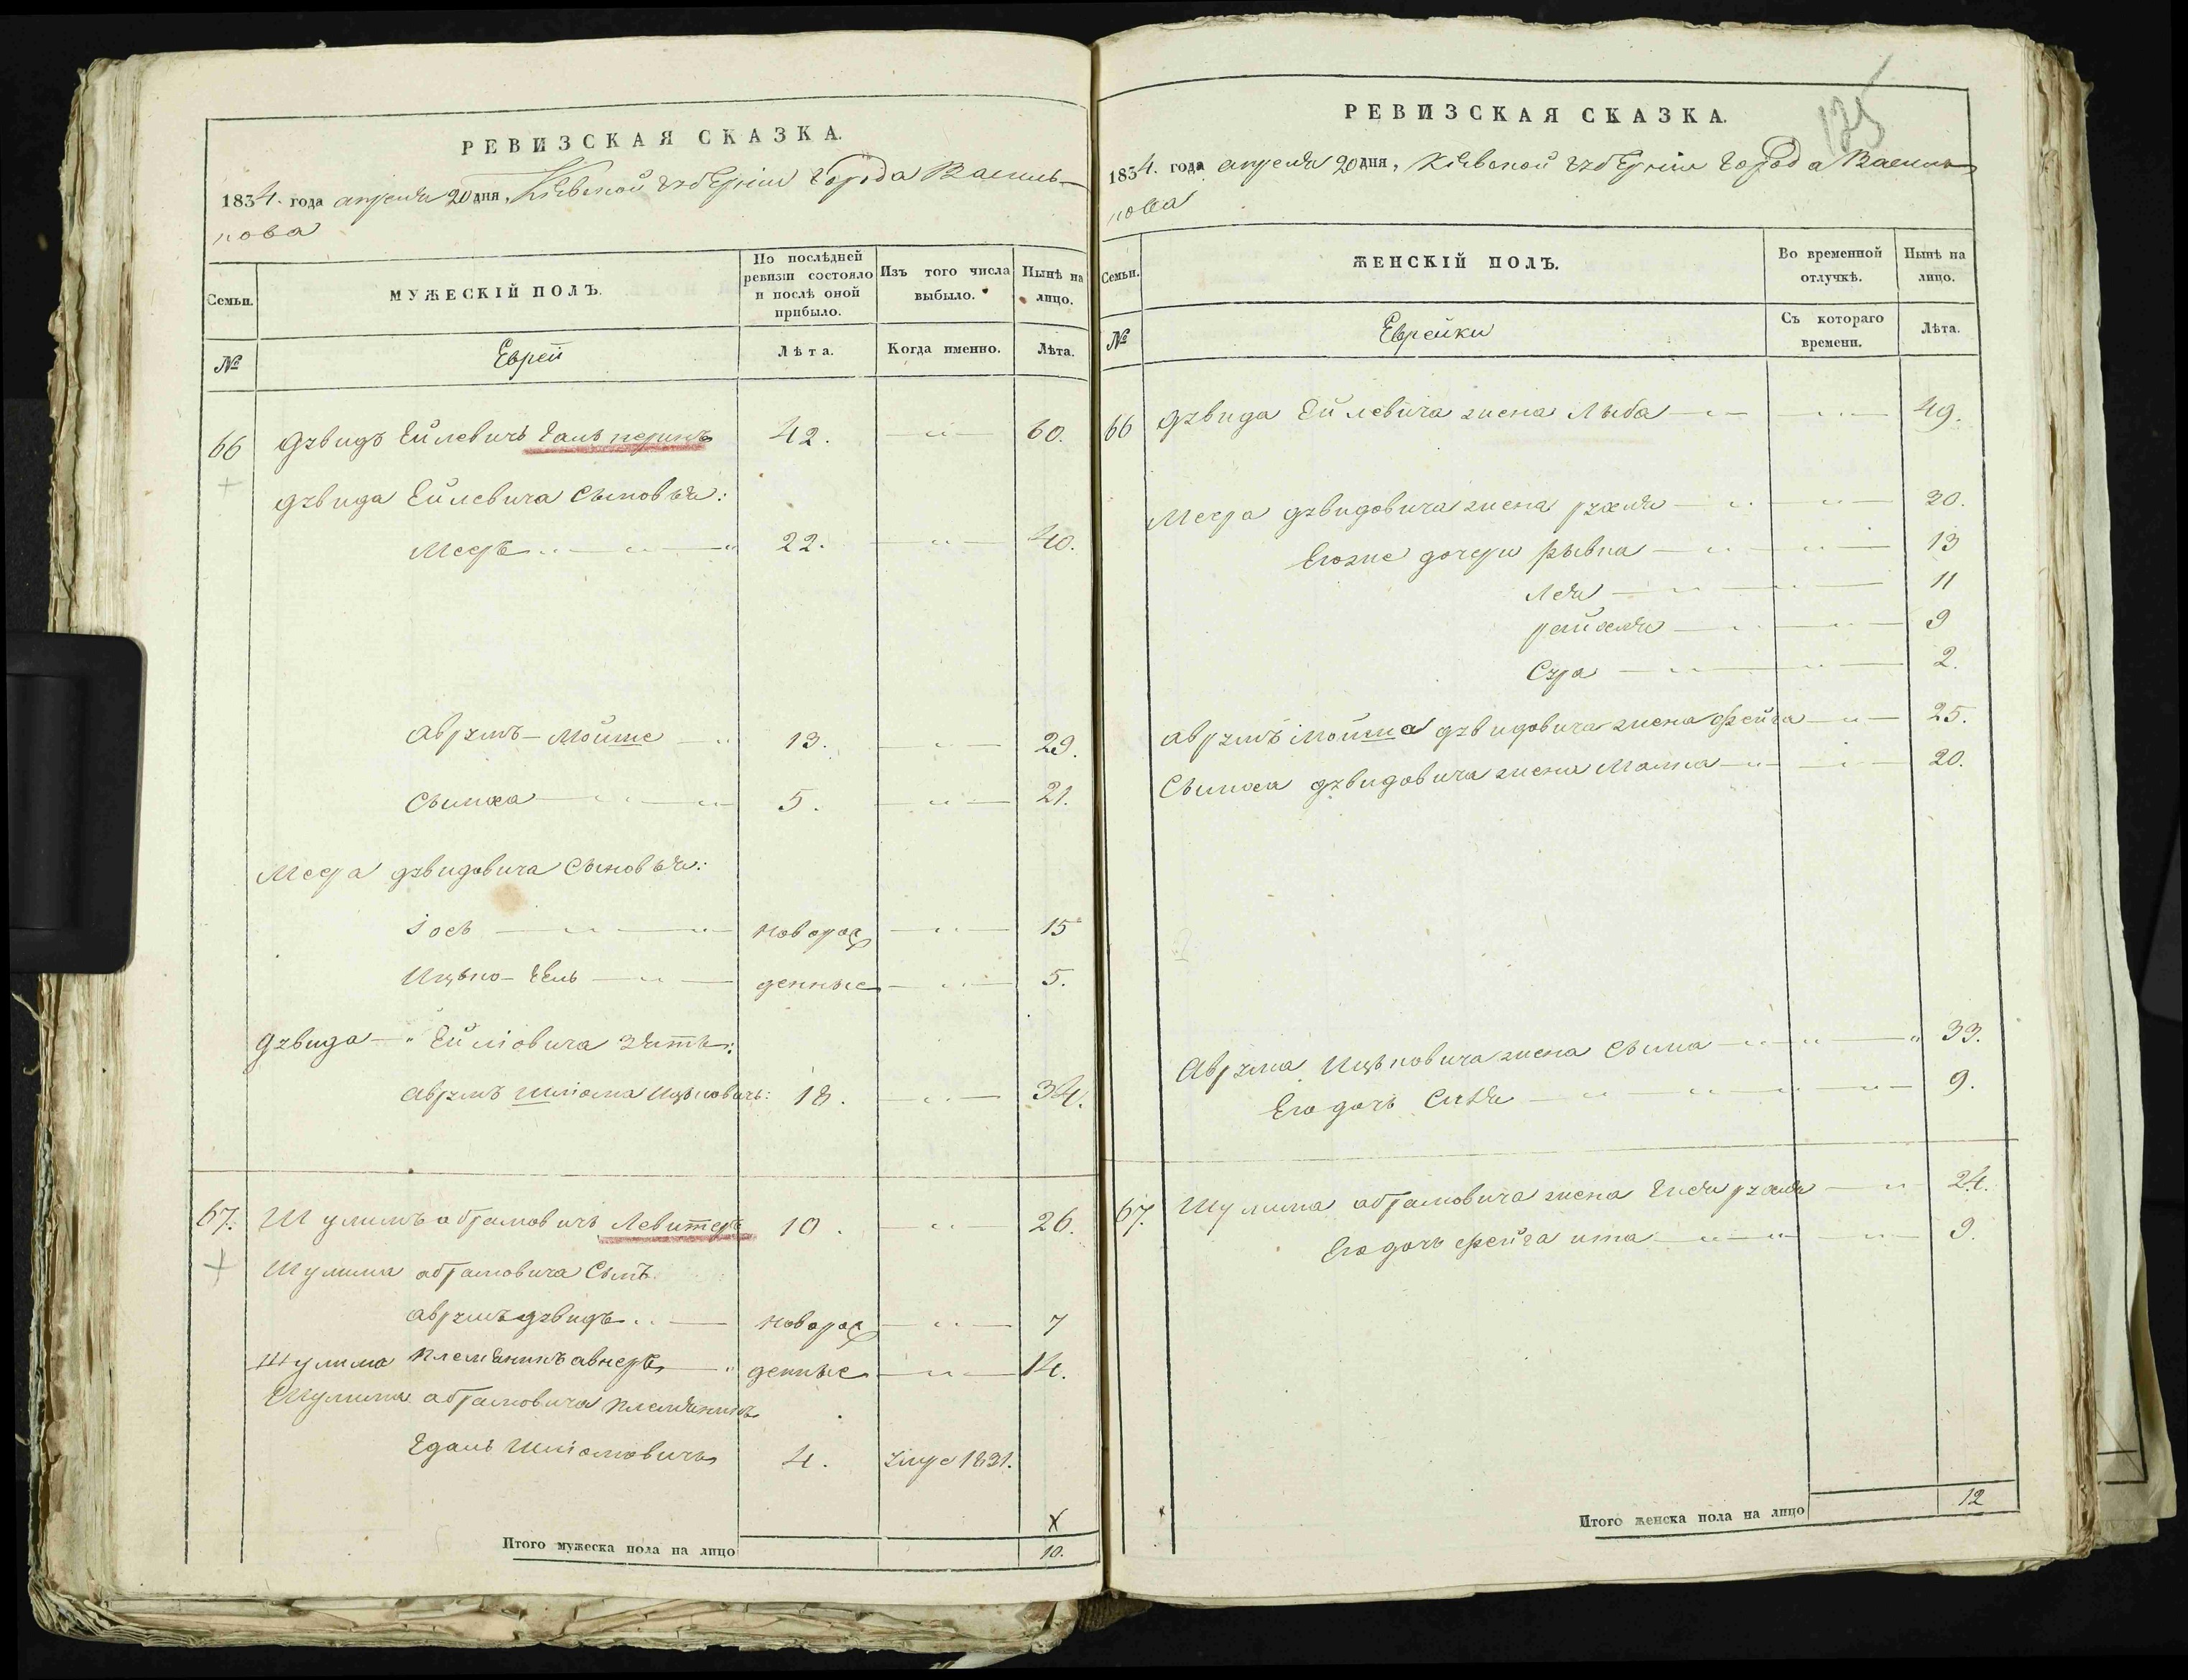 РЕВИЗСКАЯ СКАЗКА.
1834. года апреля 20 дня, Кіевской губерніи города Василь-
кова
Семьи.
МУЖЕСКІЙ ПОЛЪ.
По послѣдней ревизіи состояло и послѣ оной прибыло.
Изъ того числа выбыло.
Нынѣ на лицо.
№
Еврей
Лѣта.
Когда именно.
Лѣта.
66 Дувидъ Ейлевичъ Гальперинъ 42. 60.
Дувида Ейлевича Сыновья:
Мееръ 22. 40.
Аврумъ-Мойше 13. 29.
Сымха 5. 21.
Меера Дувидовича Сыновья:
Іось новорож 15
Ицько- денные 5.
Дувида Ейліовича Зять:
Аврумъ Шліома Ицковичъ: 18. 34.
67. Шулимъ Абрамовичъ Левитеръ 10. 26.
Шулима Абрамовича Сынъ
Аврумъ Дувидъ новорож 7
Шулима племяникъ Авнеръ денные 14.
Шулима Абрамовича племяникъ
Гдаль Шліомовичъ 4. 1831.
X
Итого мужеска пола на лицо 10.
РЕВИЗСКАЯ СКАЗКА.
125
1834. года апреля 20 дня, Кіевской губерніи города Василь
кова
Семьи.
ЖЕНСКІЙ ПОЛЪ.
Во временной отлучкѣ.
Нынѣ на лицо.
№
Еврейки
Съ котораго времени.
Лѣта.
66 Дувида Ейлевича жена Лыба 49.
Меера Дувидовича жена Рухля 30.
Егоже дочери Рывка 13
Лея 11
Райхля 9
Сура 2.
Аврумъ Мойша Дувидовича жена Фейга 25.
Сымха Дувидовича жена Малка 20.
Аврума Ицьковича жена Сыма 33.
Его дочь 9.
67. Шулима Абрамовича жена Рухля 24.
Его дочь Фейга Ита 9.
Итого женска пола на лицо 12